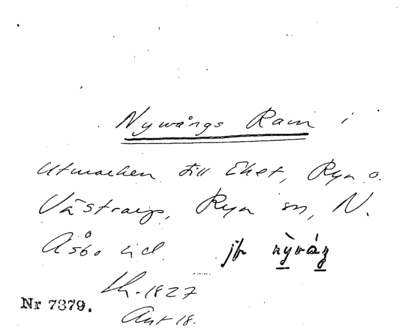 Nywångs Ram i
utmarken till Eket, Rya o.
Västraryd, Rya sn, N.
Åsbo hd. jfr nỳváŋ
1827
Nr 7379.
Akt 18.